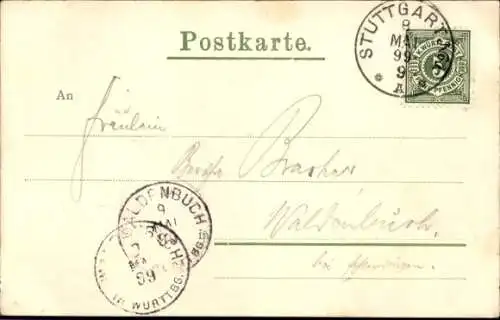 Postkarte.
STUTTGART
8
MAI
99
9
A
K. WÜRTT.
5
PFENNIG
An
Fräulein
Bertha Bracher
Waldenbuch,
WALDENBUCH
9
MAI
99
IN WÜRTTBG.